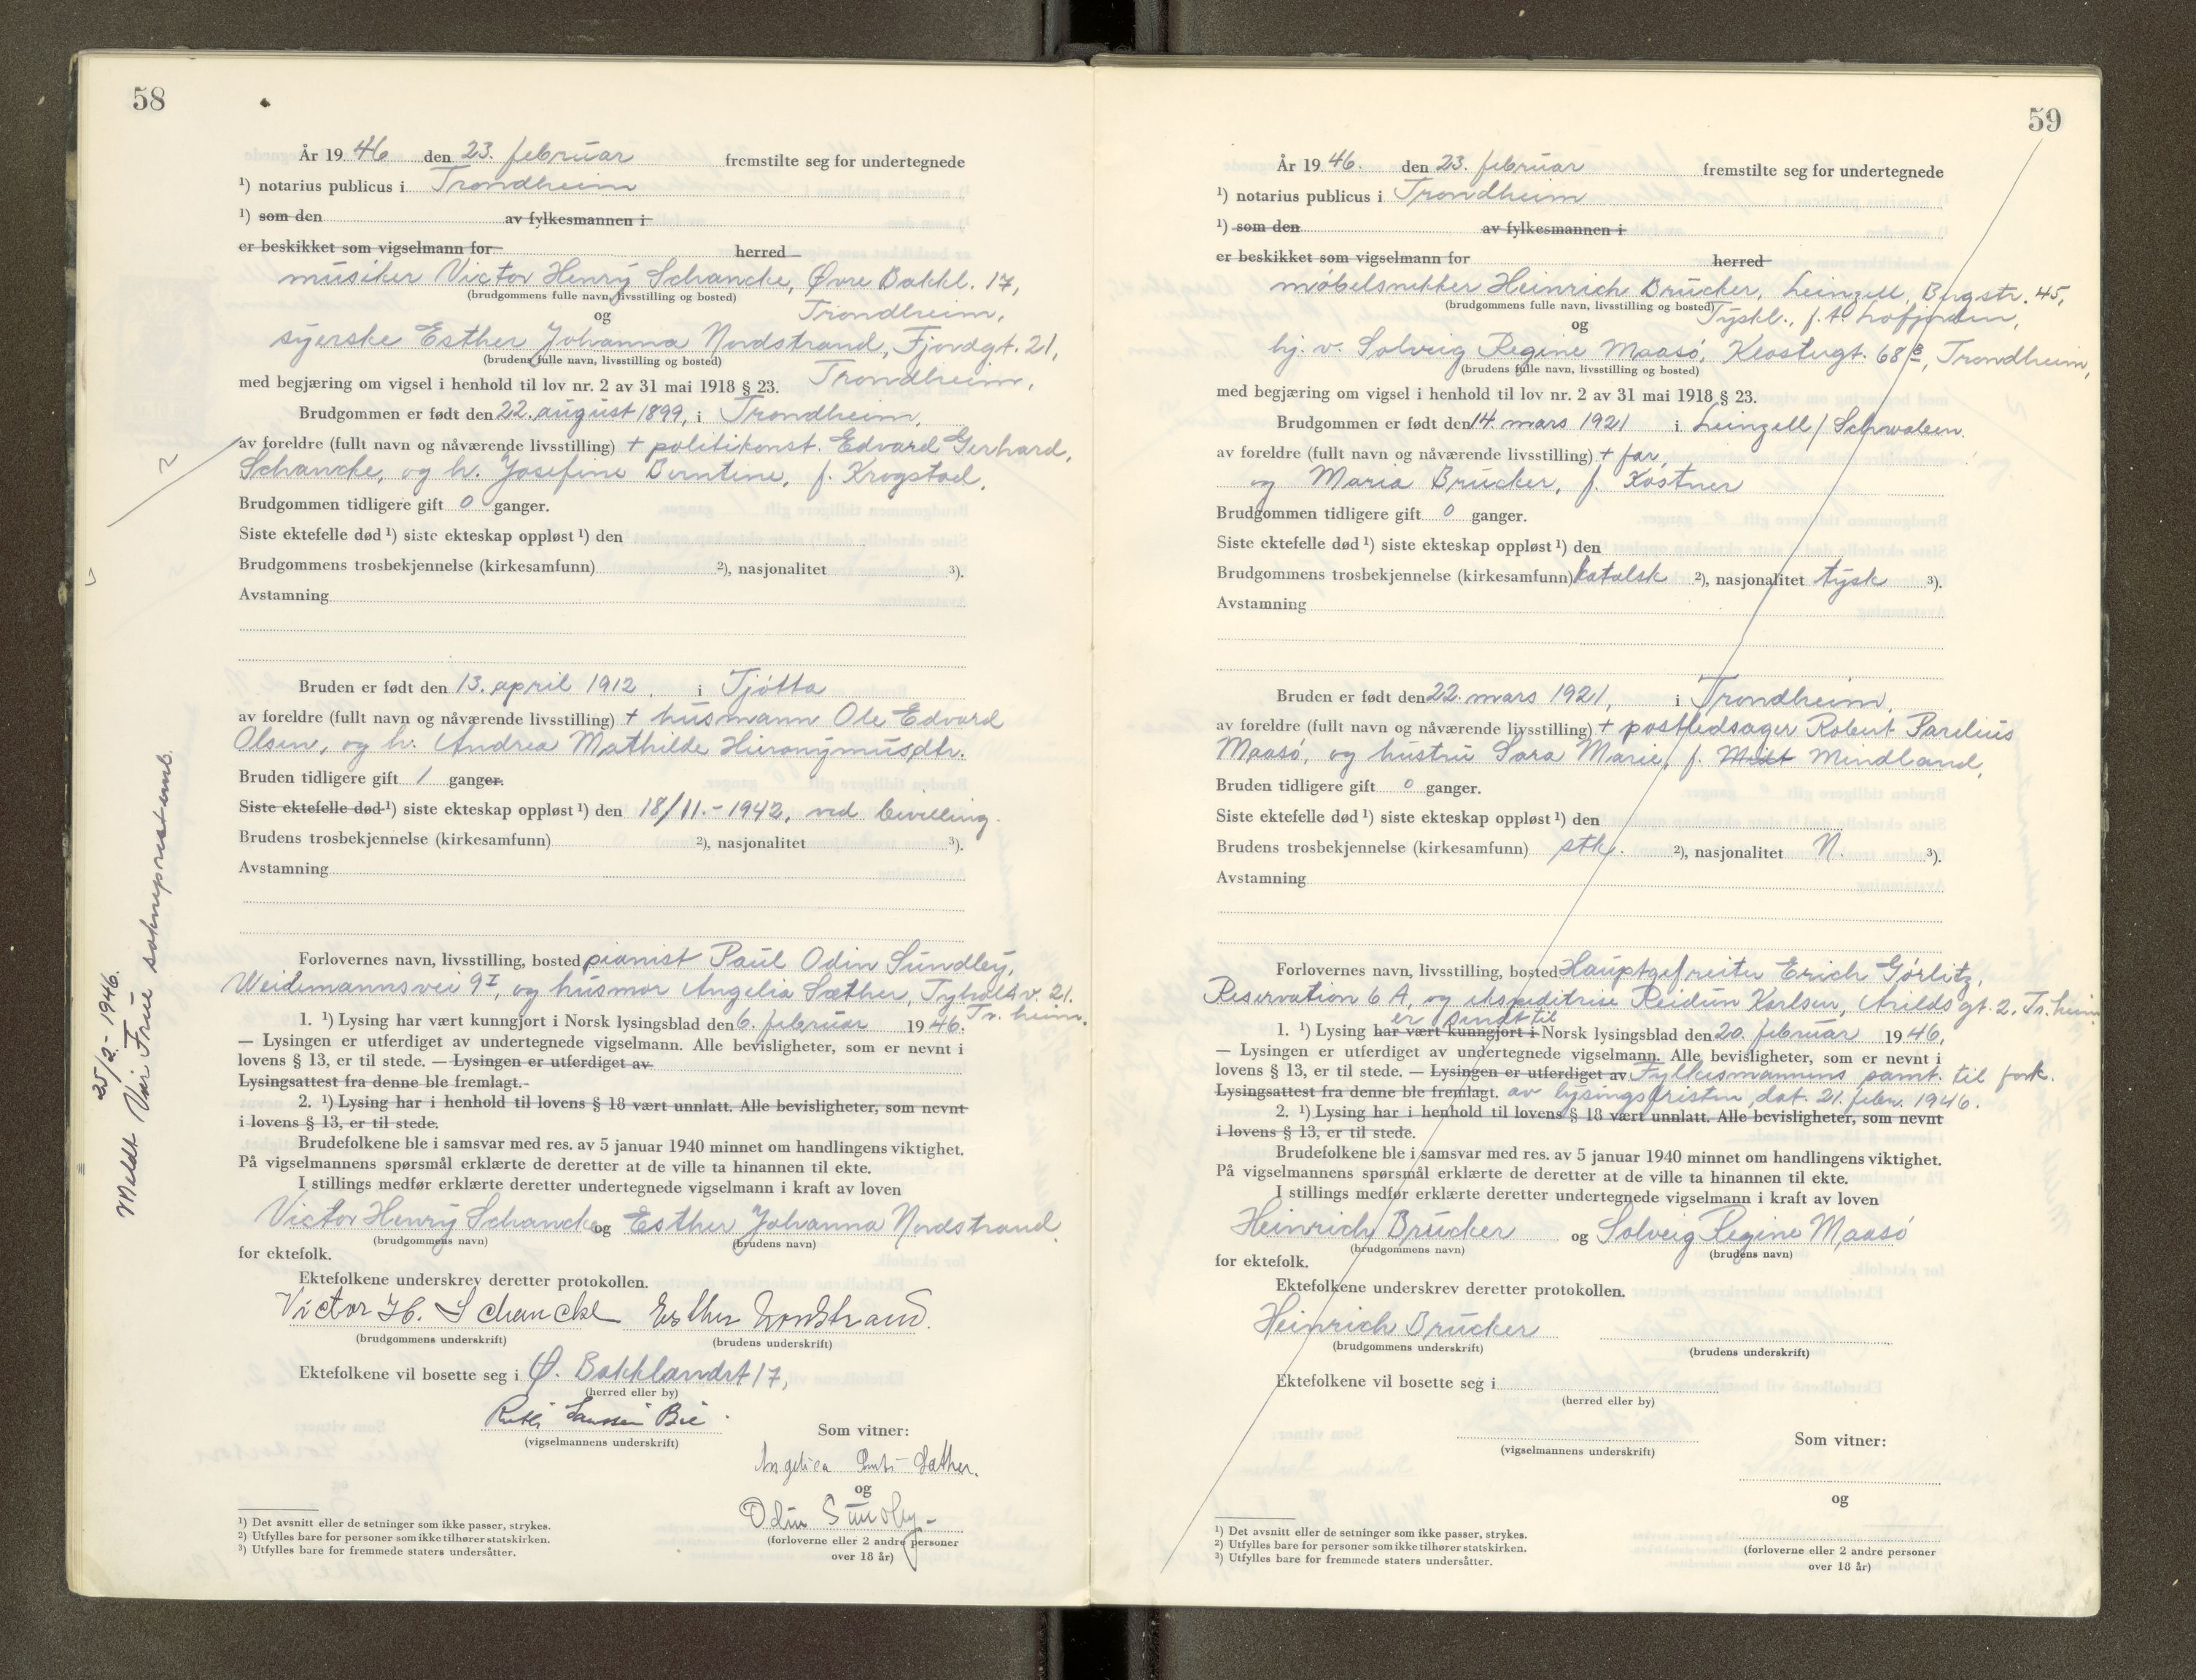 58
År 19 46 den 23. februar fremstilte seg for undertegnede
¹) notarius publicus i Trondheim
¹) som den av fylkesmannen i
er beskikket som vigselmann for herred
musiker Victor Henry Schancke, Øvre Bakkl. 17,
(brudgommens fulle navn, livsstilling og bosted)
og Trondheim,
syerske Esther Johanna Nordstrand, Fjordgt. 21,
(brudens fulle navn, livsstilling og bosted)
med begjæring om vigsel i henhold til lov nr. 2 av 31 mai 1918 § 23. Trondheim,
Brudgommen er født den 22. august 1899, i Trondheim,
av foreldre (fullt navn og nåværende livsstilling) + politikonst. Edvard Gerhard,
Schancke, og h. Josefine Berntine, f. Krogstad.
Brudgommen tidligere gift 0 ganger.
Siste ektefelle død ¹) siste ekteskap oppløst ¹) den
Brudgommens trosbekjennelse (kirkesamfunn) ²), nasjonalitet ³).
Avstamning
Bruden er født den 13. april 1912, i Tjötta
av foreldre (fullt navn og nåværende livsstilling) + husmann Ole Edvard
Olsen, og h. Andrea Mathilde Hieronymusdtr.
Bruden tidligere gift 1 ganger.
Siste ektefelle død ¹) siste ekteskap oppløst ¹) den 18/11.-1942, ved bevilling.
Brudens trosbekjennelse (kirkesamfunn) ²), nasjonalitet ³).
Avstamning
Forlovernes navn, livsstilling, bosted pianist Paul Odin Sundley,
Weidemannsvei 9 I, og husmor Angelia Sæther, Tyholt v. 21.
Tr. heim.
1. ¹) Lysing har vært kunngjort i Norsk lysingsblad den 6. februar 19 46.
— Lysingen er utferdiget av undertegnede vigselmann. Alle bevisligheter, som er nevnt i
lovens § 13, er til stede. — Lysingen er utferdiget av
Lysingsattest fra denne ble fremlagt.
2. ¹) Lysing har i henhold til lovens § 18 vært unnlatt. Alle bevisligheter, som nevnt
i lovens § 13, er til stede.
Brudefolkene ble i samsvar med res. av 5 januar 1940 minnet om handlingens viktighet.
På vigselmannens spørsmål erklærte de deretter at de ville ta hinannen til ekte.
I stillings medfør erklærte deretter undertegnede vigselmann i kraft av loven
Victor Henry Schancke og Esther Johanna Nordstrand
(brudgommens navn) (brudens navn)
for ektefolk.
Ektefolkene underskrev deretter protokollen.
Victor H. Schancke Esther Nordstrand.
(brudgommens underskrift) (brudens underskrift)
Ektefolkene vil bosette seg i Ø. Bakklandet 17,
(herred eller by)
(vigselmannens underskrift)
Som vitner:
Angelica Sæther.
og
Odin Sundby
(forloverne eller 2 andre personer
over 18 år)
¹) Det avsnitt eller de setninger som ikke passer, strykes.
²) Utfylles bare for personer som ikke tilhører statskirken.
³) Utfylles bare for fremmede staters undersåtter.
25/2-1946.
Meldt Vår Frue sokneprestemb.
59
År 19 46. den 23. februar fremstilte seg for undertegnede
¹) notarius publicus i Trondheim
¹) som den av fylkesmannen i
er beskikket som vigselmann for herred
møbelsnekker Heinrich Brücker, Leinzell, Bergstr. 45,
(brudgommens fulle navn, livsstilling og bosted)
og Tyskl., f. t. Lofjorden,
hj. v. Solveig Regine Maasö, Klostergt. 68 B, Trondheim,
(brudens fulle navn, livsstilling og bosted)
med begjæring om vigsel i henhold til lov nr. 2 av 31 mai 1918 § 23.
Brudgommen er født den 14. mars 1921 i Leinzell/Schwaben.
av foreldre (fullt navn og nåværende livsstilling) + far,
og Maria Brücker, f. Kostner
Brudgommen tidligere gift 0 ganger.
Siste ektefelle død ¹) siste ekteskap oppløst ¹) den
Brudgommens trosbekjennelse (kirkesamfunn) katolsk ²), nasjonalitet tysk ³).
Avstamning
Bruden er født den 22. mars 1921, i Trondheim,
av foreldre (fullt navn og nåværende livsstilling) + postledsager Robert Parelius
Maasö, og hustru Sara Marie, f. Midt Mindland,
Bruden tidligere gift 0 ganger.
Siste ektefelle død ¹) siste ekteskap oppløst ¹) den
Brudens trosbekjennelse (kirkesamfunn) stk. ²), nasjonalitet N. ³).
Avstamning
Forlovernes navn, livsstilling, bosted Hauptgefreiter Erich Görlitz,
Reservation 6 A, og ekspeditrise Reidun Karlsen, Arildsgt. 2, Tr.heim
er sendt til
1. ¹) Lysing har vært kunngjort i Norsk lysingsblad den 20. februar 19 46,
— Lysingen er utferdiget av undertegnede vigselmann. Alle bevisligheter, som er nevnt i
lovens § 13, er til stede. — Lysingen er utferdiget av Fylkesmannens samt. til fork.
Lysingsattest fra denne ble fremlagt. av lysingsfristen, dat. 21. febr. 1946.
2. ¹) Lysing har i henhold til lovens § 18 vært unnlatt. Alle bevisligheter, som nevnt
i lovens § 13, er til stede.
Brudefolkene ble i samsvar med res. av 5 januar 1940 minnet om handlingens viktighet.
På vigselmannens spørsmål erklærte de deretter at de ville ta hinannen til ekte.
I stillings medfør erklærte deretter undertegnede vigselmann i kraft av loven
Heinrich Brücker og Solveig Regine Maasö
(brudgommens navn) (brudens navn)
for ektefolk.
Ektefolkene underskrev deretter protokollen.
Heinrich Brücker
(brudgommens underskrift) (brudens underskrift)
Ektefolkene vil bosette seg i
(herred eller by)
(vigselmannens underskrift)
Som vitner:
og
(forloverne eller 2 andre personer
over 18 år)
¹) Det avsnitt eller de setninger som ikke passer, strykes.
²) Utfylles bare for personer som ikke tilhører statskirken.
³) Utfylles bare for fremmede staters undersåtter.